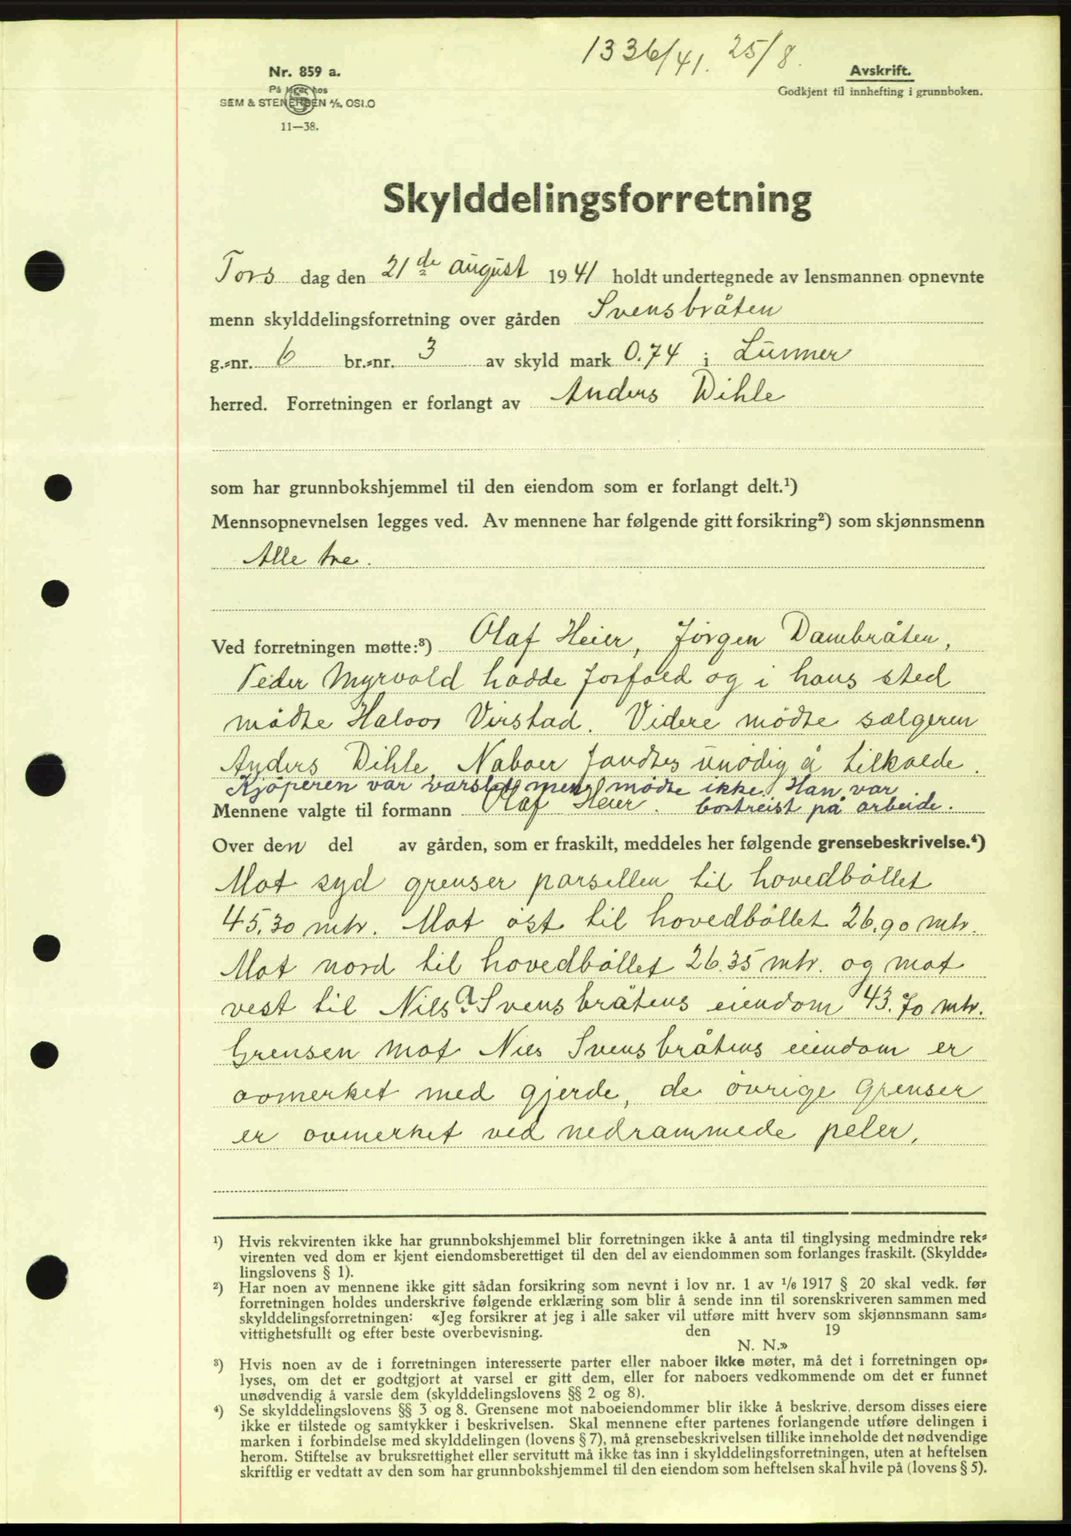 1336/41. 25/8.
Nr. 859 a.
På lager hos
SEM & STENERSEN A/S. OSLO
11—38.
Avskrift.
Godkjent til innhefting i grunnboken.
Skylddelingsforretning
Tors dag den 21de august 1941 holdt undertegnede av lensmannen opnevnte
menn skylddelingsforretning over gården Svensbråten
g.-nr. 6 br.-nr. 3 av skyld mark 0.74 i Lunner
herred. Forretningen er forlangt av Anders Dihle
som har grunnbokshjemmel til den eiendom som er forlangt delt.¹)
Mennsopnevnelsen legges ved. Av mennene har følgende gitt forsikring²) som skjønnsmenn
Alle tre.
Ved forretningen møtte:³) Olaf Heier, Jörgen Dambråten,
Peder Myrvold hadde forfald og i hans sted
mödte Halvor Virstad. Videre mödte sælgeren
Anders Dihle. Naboer fandtes unödig å tilkalde.
Kjöperen var varslet men mödte ikke. Han var
bortreist på arbeide.
Mennene valgte til formann Olaf Heier.
Over den del av gården, som er fraskilt, meddeles her følgende grensebeskrivelse.⁴)
Mot syd grenser parsellen til hovedböllet
45.30 mtr. Mot öst til hovedböllet 26.90 mtr.
Mot nord til hovedböllet 26.35 mtr. og mot
vest til Nils A. Svensbråtens eiendom 43.70 mtr.
Grensen mot Nils Svensbråtens eiendom er
avmerket med gjerde, de övrige grenser
er avmerket ved nedrammede peler.
¹) Hvis rekvirenten ikke har grunnbokshjemmel blir forretningen ikke å anta til tinglysing medmindre rek-
virenten ved dom er kjent eiendomsberettiget til den del av eiendommen som forlanges fraskilt. (Skyldde-
lingslovens § 1).
²) Har noen av mennene ikke gitt sådan forsikring som nevnt i lov nr. 1 av 1/6 1917 § 20 skal vedk. før
forretningen holdes underskrive følgende erklæring som blir å sende inn til sorenskriveren sammen med
skylddelingsforretningen: «Jeg forsikrer at jeg i alle saker vil utføre mitt hverv som skjønnsmann sam-
vittighetsfullt og efter beste overbevisning. den 19
N. N.»
³) Hvis noen av de i forretningen interesserte parter eller naboer ikke møter, må det i forretningen op-
lyses, om det er godtgjort at varsel er gitt dem, eller for naboers vedkommende om det er funnet
unødvendig å varsle dem (skylddelingslovens §§ 2 og 8).
⁴) Se skylddelingslovens §§ 3 og 8. Grensene mot naboeiendommer blir ikke å beskrive, dersom disses eiere
ikke er tilstede og samtykker i beskrivelsen. Skal mennene efter partenes forlangende utføre delingen i
marken i forbindelse med skylddelingen (lovens § 7), må grensebeskrivelsen tillike inneholde det nødvendige
herom. Stiftelse av bruksrettighet eller servitutt må ikke tas inn i skylddelingsforretningen, uten at heftelsen
skriftlig er vedtatt av den som har grunnbokshjemmel til den eiendom som heftelsen skal hvile på (lovens § 5).